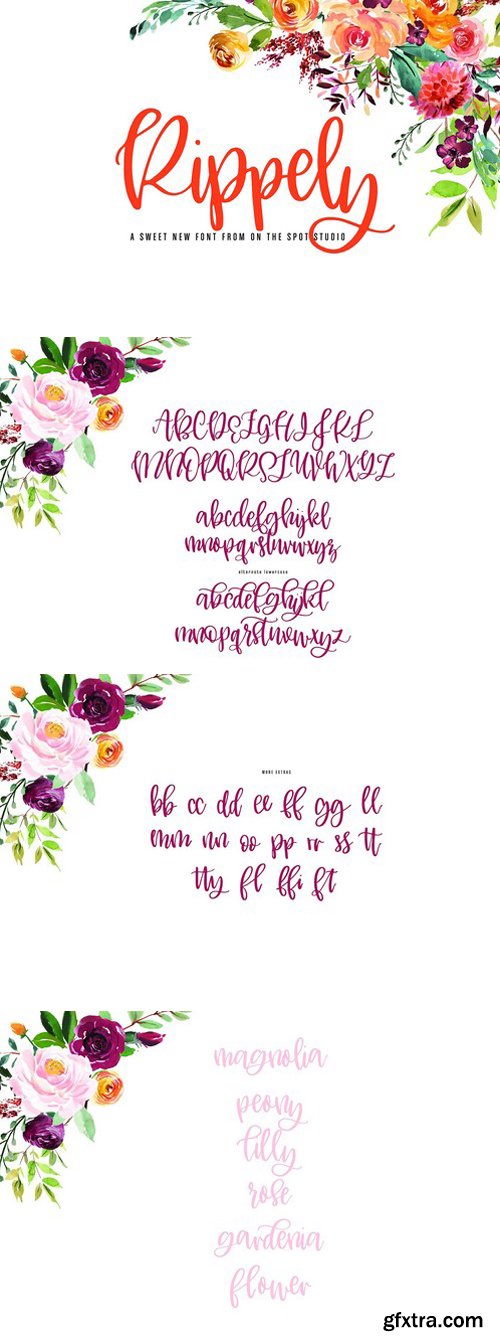 Rippely
A SWEET NEW FONT FROM ON THE SPOT STUDIO
ABCDEFGHIJKL
MNOPQRSTUVWXYZ
abcdefghijkl
mnopqrstuvwxyz
alternate lowercase
abcdefghijkl
mnopqrstuvwxyz
MORE EXTRAS
bb cc dd ee ff gg ll
mm nn oo pp rr ss tt
tty fl ffi ft
magnolia
peony
lilly
rose
gardenia
flower
gfxtra.com